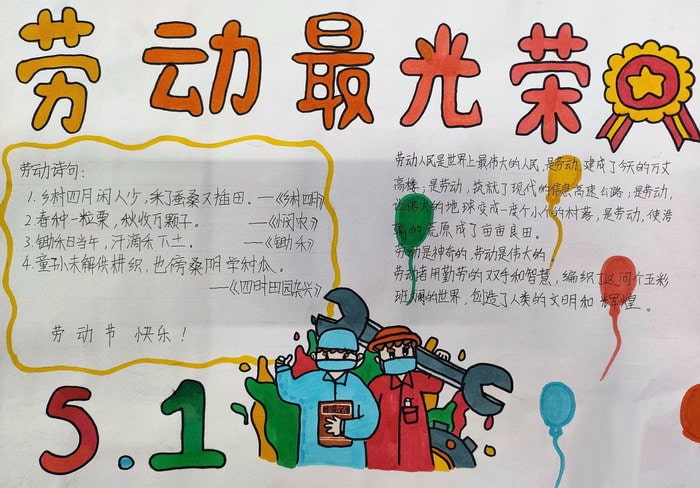 劳动最光荣
劳动诗句:
1.乡村四月闲人少,采了蚕桑又插田。——《乡村四月》
2.春种一粒粟,秋收万颗子。——《悯农》
3.锄禾日当午,汗滴禾下土。——《锄禾》
4.童孙未解供耕织,也傍桑阴学种瓜。
——《四时田园杂兴》
劳动节快乐!
劳动人民是世界上最伟大的人民,是劳动,建成了今天的万丈
高楼;是劳动,筑就了现代的信息高速公路;是劳动,
让伟大的地球变成一度个小小的村落;是劳动,使浩
荒原成了亩亩良田。
劳动是神奇的,劳动是伟大的。
劳动者用勤劳的双手和智慧,编织了这问个五彩
班斓的世界,创造了人类的文明和辉煌。
5.1